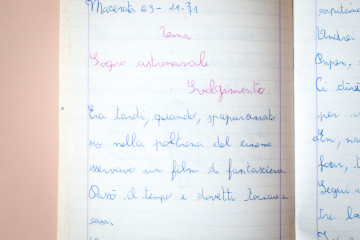 Macerata 23-11-71
Tema
Sogno astronavale
Svolgimento
Era tardi, quando, spaparanzato
su nella poltrona del cinema
osservavo un film di fantascienza
Passò il tempo e dovetti tornare a
casa.
capitano
Andre
Ci dire
per
tre la